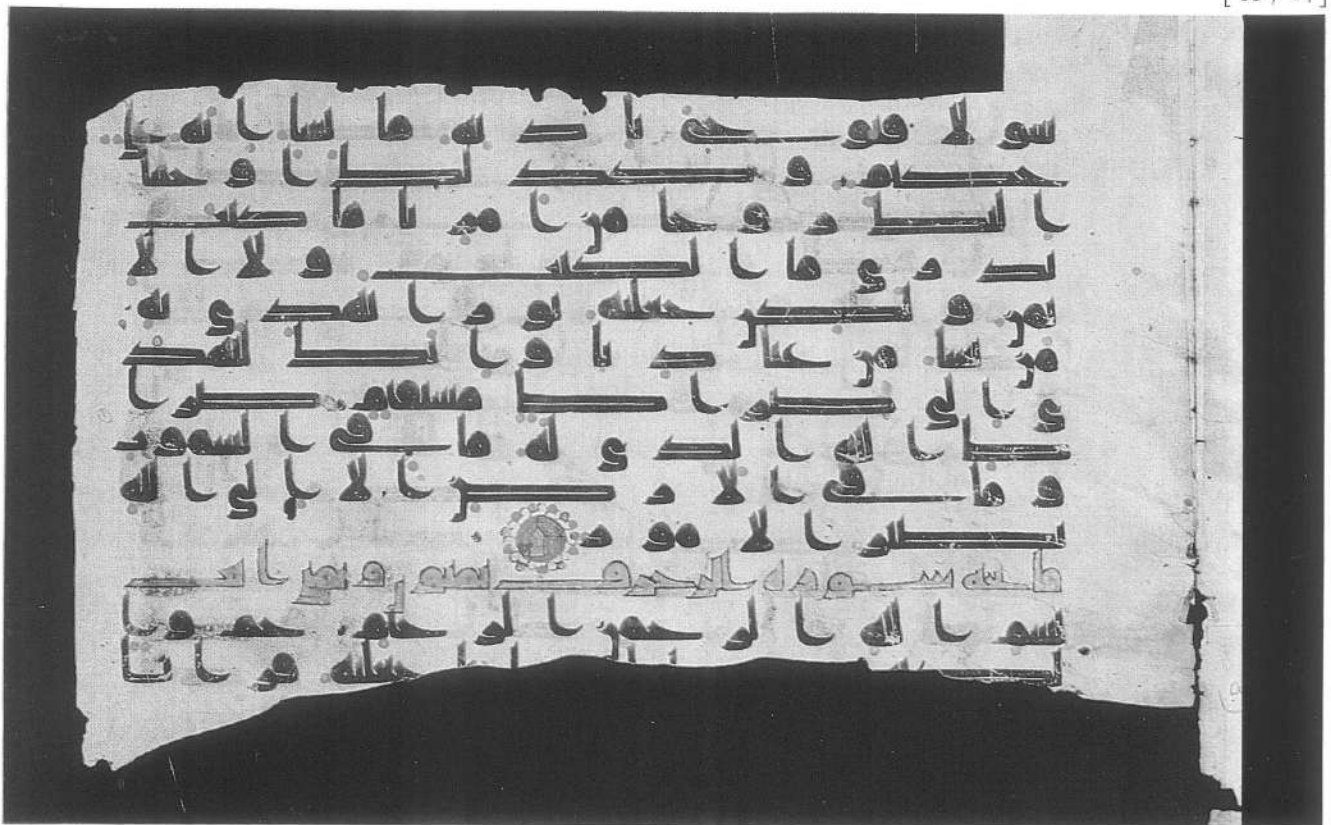 سولا فيوحى باذنه ما يشا انه على
حكيم وكذلك اوحين
ا اليك روحا من امرنا ما كنت
تدرى ما الكتب ولا الا
يمن ولكن جعلنه نورا نهدى به
من نشا من عبادنا وانك لتهد
ى الى صرط مستقيم صرا
ط الله الذى له ما فى السموت
وما فى الارض الا الى الله
تصير الامور
سورة الزخرف
بسم الله الرحمن الرحيم حم وا
لكتب انا جعلنه قرانا